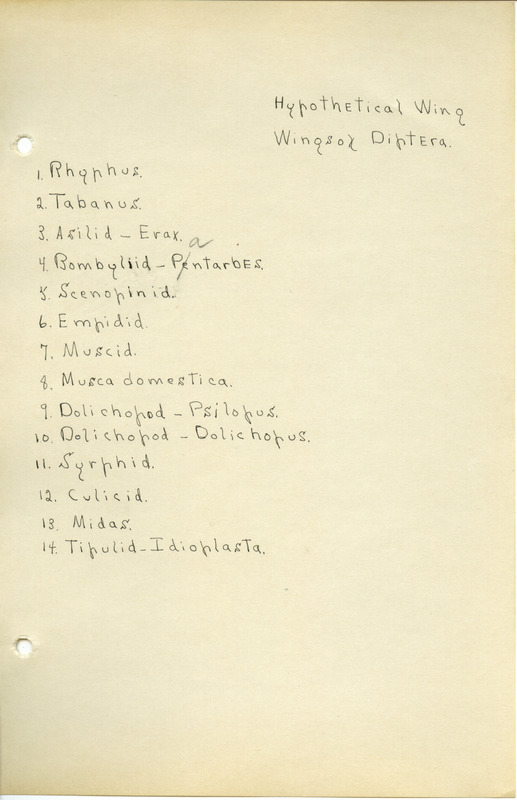 Hypothetical Wing
Wings of Diptera.
1. Rhyphus.
2. Tabanus.
3. Asilid - Erax.
a
4. Bombyliid - Pentarbes.
5. Scenopinid.
6. Empidid.
7. Muscid.
8. Musca domestica.
9. Dolichopod - Psilopus.
10. Dolichopod - Dolichopus.
11. Syrphid.
12. Culicid.
13. Midas.
14. Tipulid - Idioplasta.